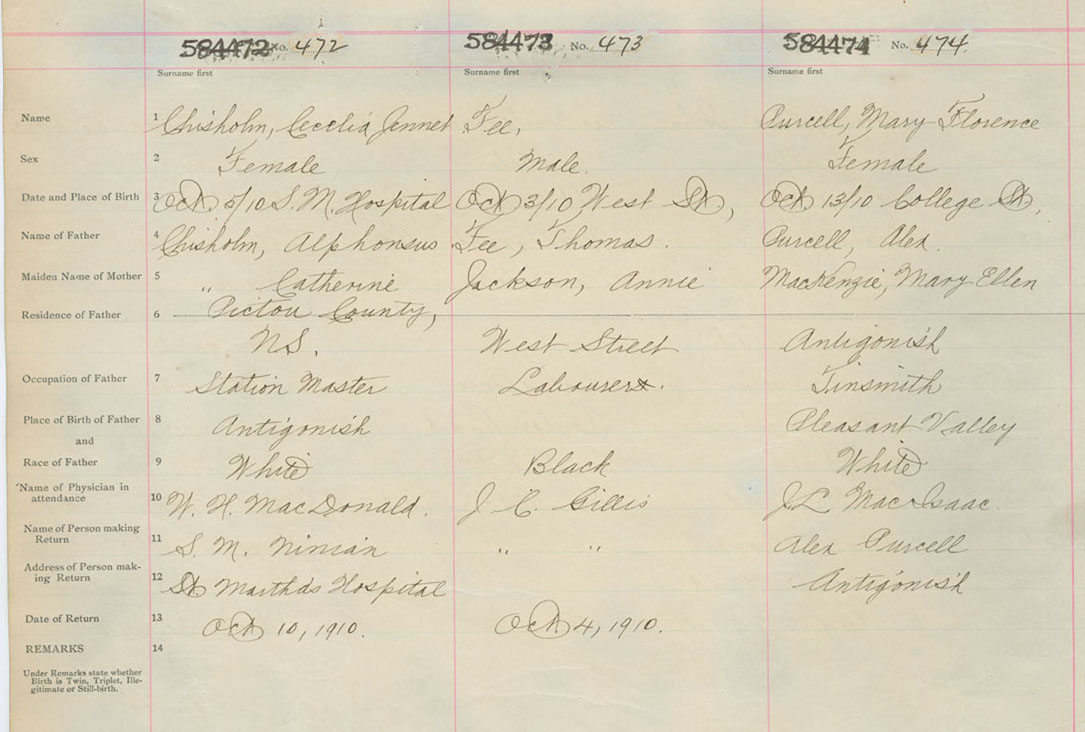 584472 No. 472 584473 No. 473 584474 No. 474.
Surname first Surname first Surname first
Name 1 Chisholm, Cecelia Jennet Fee, Purcell, Mary Florence
Sex 2 Female Male. Female
Date and Place of Birth 3 Oct. 5/10 S. M. Hospital Oct 3/10, West St, Oct 13/10 College St,
Name of Father 4 Chisholm, Alphonsus Fee, Thomas. Purcell, Alex.
Maiden Name of Mother 5 " Catherine Jackson, Annie MacKenzie, Mary Ellen
Residence of Father 6 Pictou County,
N.S. West Street Antigonish
Occupation of Father 7 Station Master Labourer. Tinsmith
Place of Birth of Father 8 Antigonish Pleasant Valley
and
Race of Father 9 White Black White
Name of Physician in
attendance 10 W. H. MacDonald. J. C. Gillis J L MacIsaac.
Name of Person making
Return 11 S. M. Ninian " " Alex Purcell
Address of Person mak-
ing Return 12 St Martha's Hospital Antigonish
Date of Return 13 Oct 10, 1910. Oct 4, 1910.
REMARKS 14
Under Remarks state whether
Birth is Twin, Triplet, Ille-
gitimate or Still-birth.